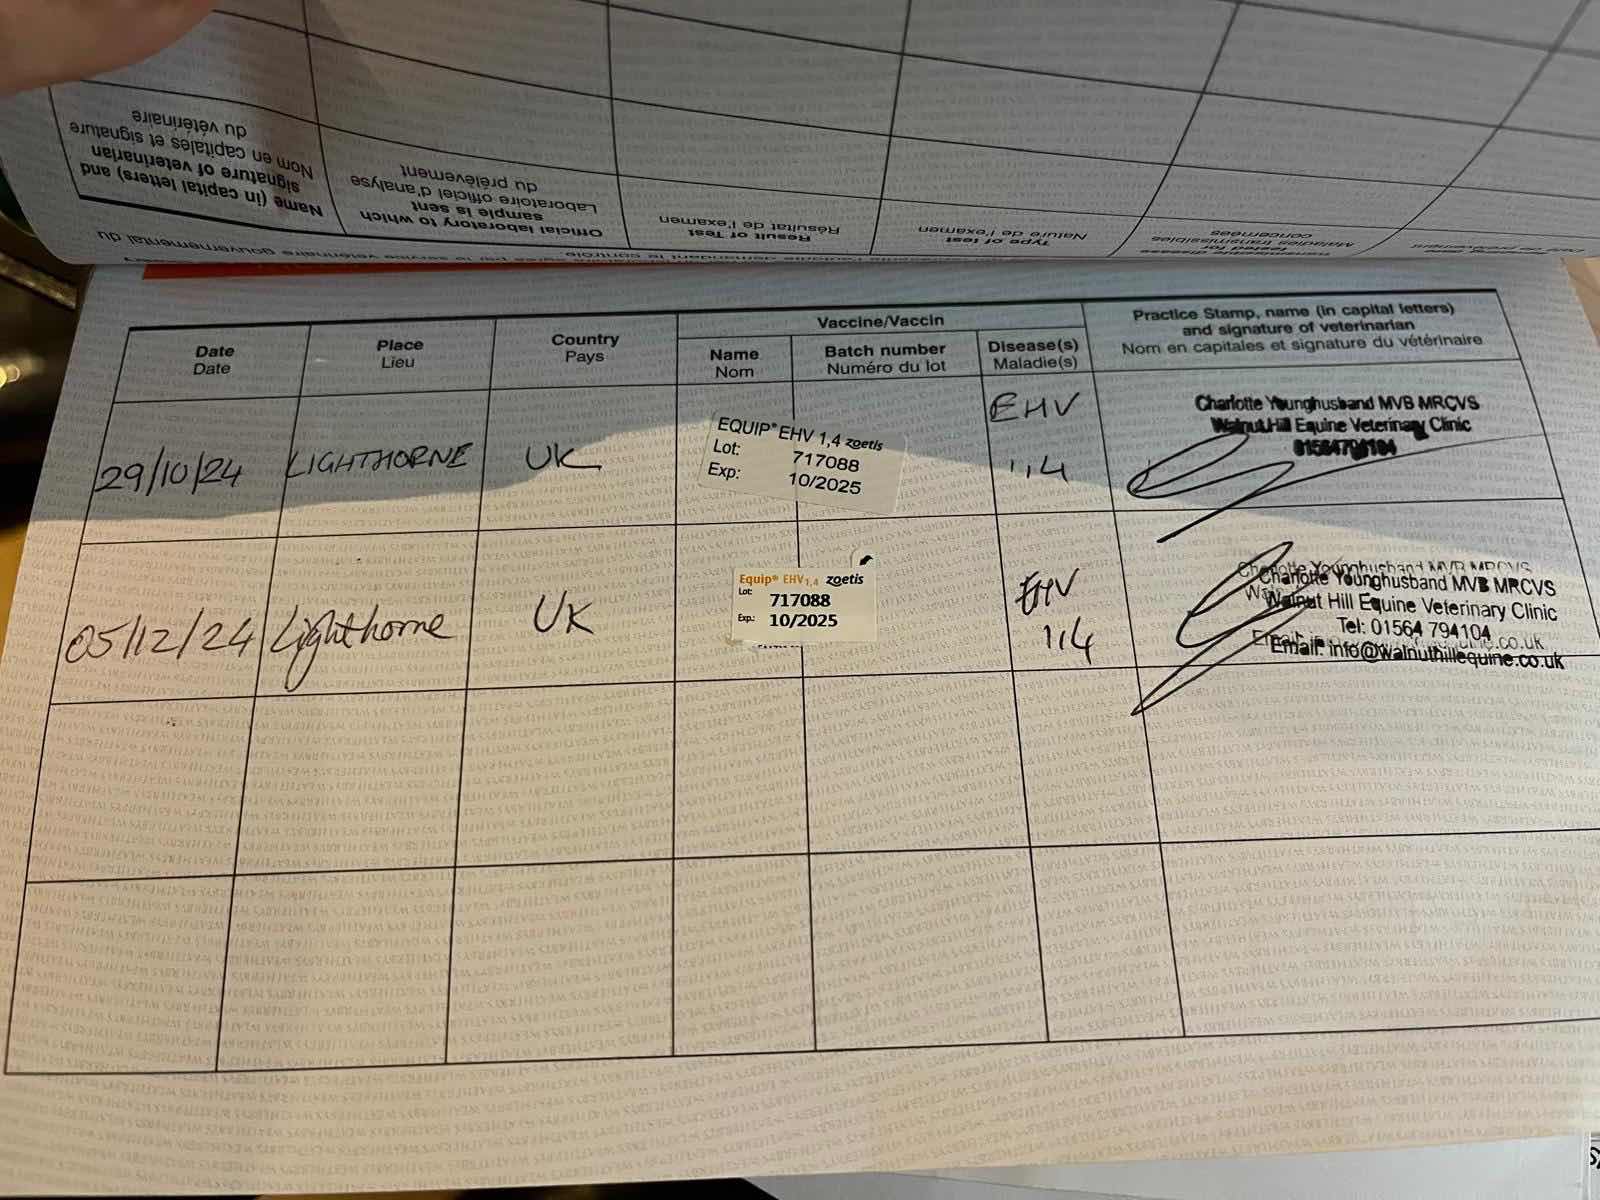 Name (in capital letters) and
signature of veterinarian
Nom en capitales et signature
du vétérinaire
Official laboratory to which
sample is sent
Laboratoire officiel d'analyse
du prélèvement
Result of Test
Résultat de l'examen
Type of test
Nature de l'examen
tested for
Maladies transmissibles
concernées
Date
Date
Place
Lieu
Country
Pays
Vaccine/Vaccin
Name
Nom
Batch number
Numéro du lot
Disease(s)
Maladie(s)
Practice Stamp, name (in capital letters)
and signature of veterinarian
Nom en capitales et signature du vétérinaire
29/10/24
LIGHTHORNE
UK
EQUIP® EHV 1,4 zoetis
Lot: 717088
Exp: 10/2025
EHV
1,4
Charlotte Younghusband MVB MRCVS
Walnut Hill Equine Veterinary Clinic
01564794104
05/12/24
Lighthorne
UK
Equip® EHV1,4 zoetis
Lot: 717088
Exp.: 10/2025
EHV
1,4
Charlotte Younghusband MVB MRCVS
Walnut Hill Equine Veterinary Clinic
Tel: 01564 794104
Email: info@walnuthillequine.co.uk